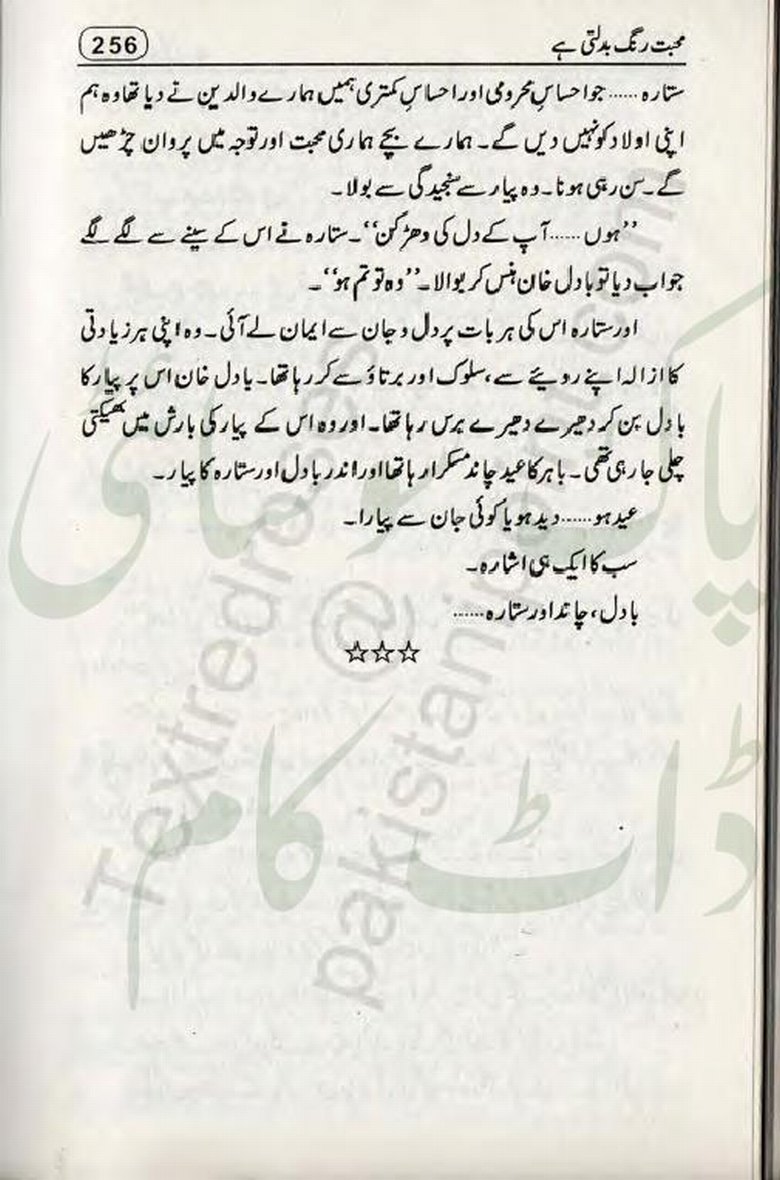 محبت رنگ بدلتی ہے
256
ستارہ ...... جو احساسِ محرومی اور احساسِ کمتری ہمیں ہمارے والدین نے دیا تھا وہ ہم
اپنی اولاد کو نہیں دیں گے۔ ہمارے بچے ہماری محبت اور توجہ میں پروان چڑھیں
گے۔ سن رہی ہو نا۔ وہ پیار سے سنجیدگی سے بولا۔
’’ہوں ...... آپ کے دل کی دھڑکن‘‘۔ ستارہ نے اس کے سینے سے لگے لگے
جواب دیا تو بادل خان ہنس کر بوالا۔ ’’وہ تو تم ہو‘‘۔
اور ستارہ اس کی ہر بات پر دل و جان سے ایمان لے آئی۔ وہ اپنی ہر زیادتی
کا ازالہ اپنے رویئے سے، سلوک اور برتاؤ سے کر رہا تھا۔ بادل خان اس پر پیار کا
بادل بن کر دھیرے دھیرے برس رہا تھا۔ اور وہ اس کے پیار کی بارش میں بھیگتی
چلی جا رہی تھی۔ باہر کا عید چاند مسکرا رہا تھا اور اندر بادل اور ستارہ کا پیار۔
عید ہو ...... دید ہو یا کوئی جان سے پیارا۔
سب کا ایک ہی اشارہ۔
بادل، چاند اور ستارہ ......
☆☆☆
پاک سوسائٹی
ڈاٹ کام
Textredroses
@
pakistanipoint.com